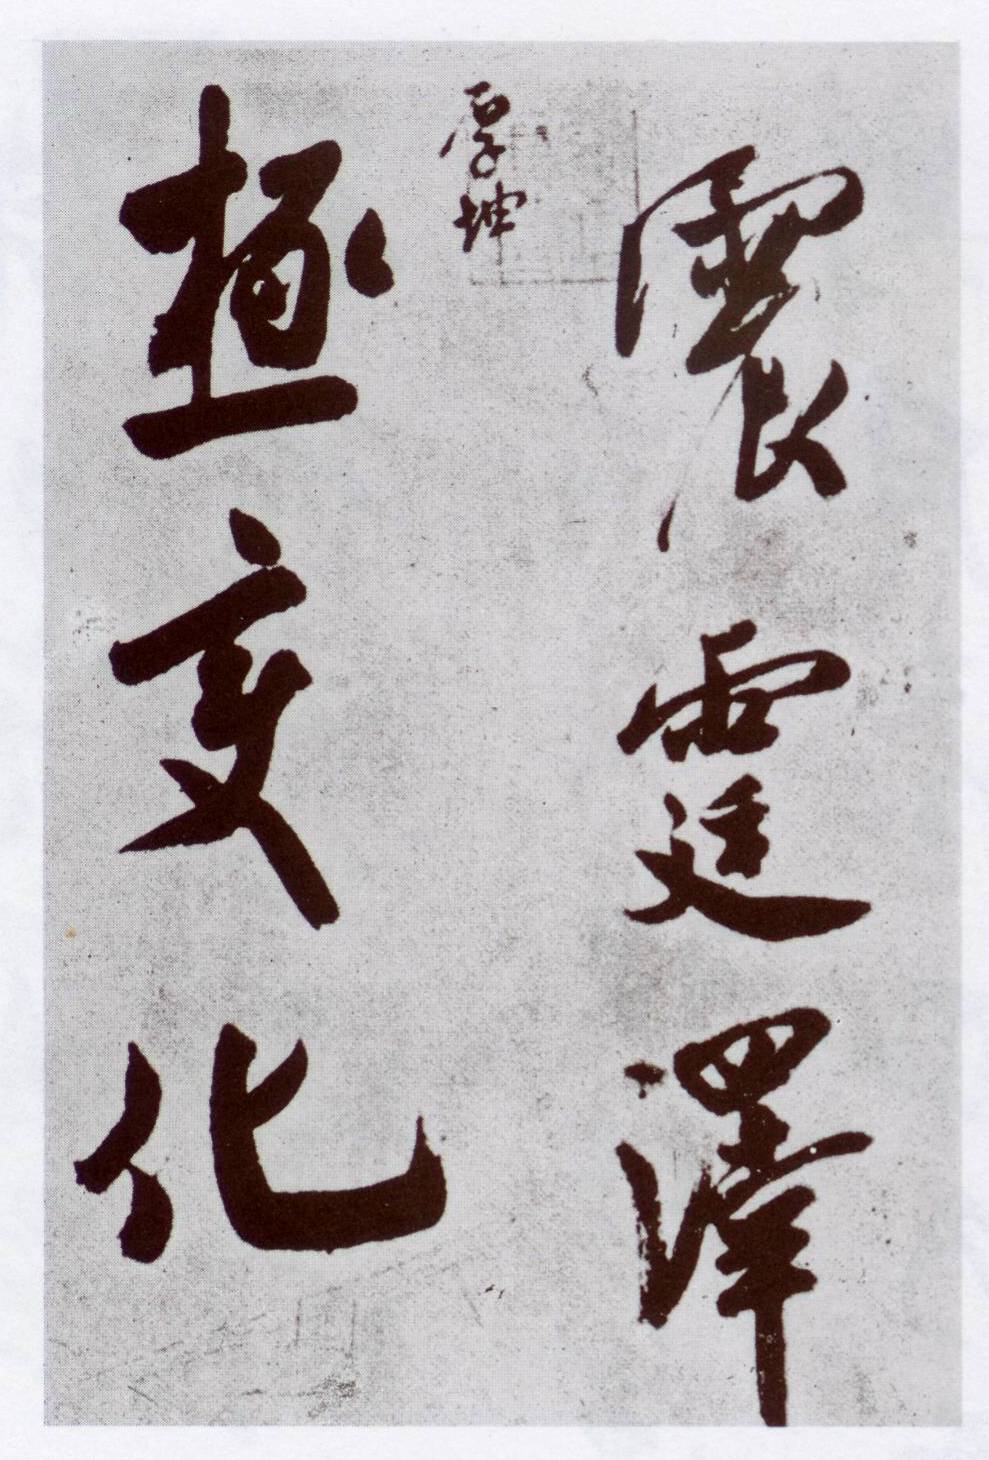 震霆澤
厚坤
極变化